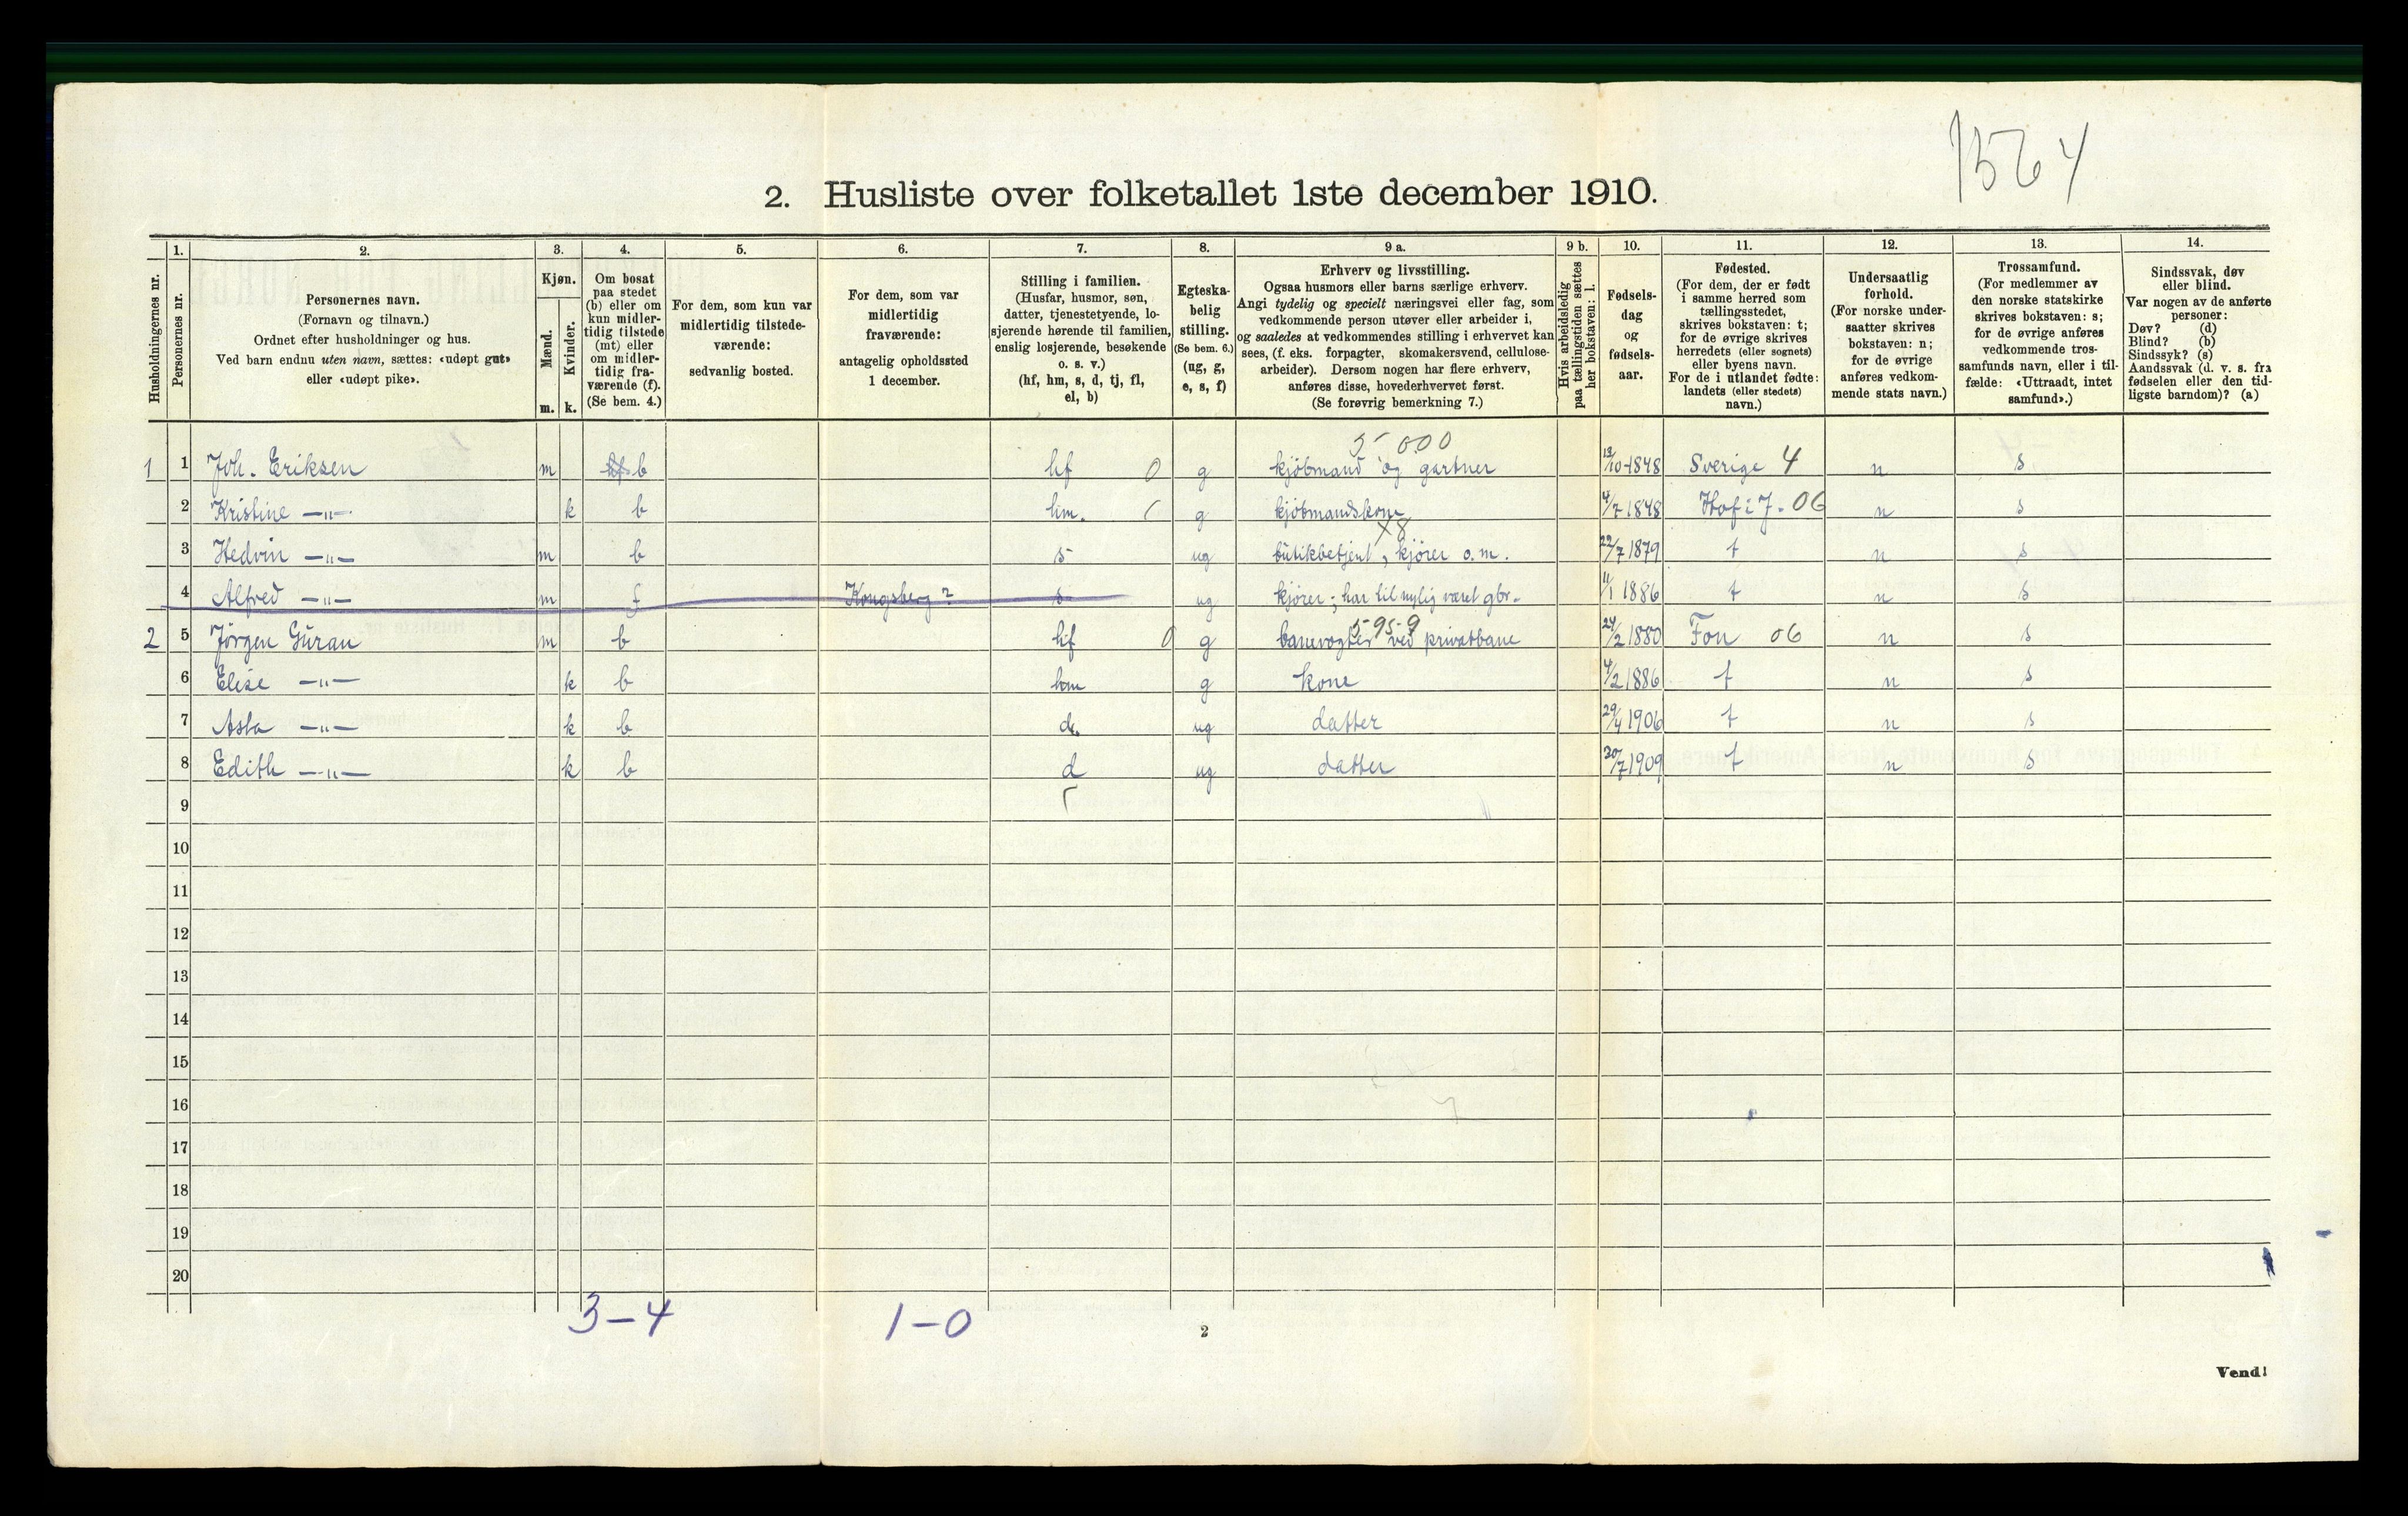 1564
2. Husliste over folketallet 1ste december 1910.
Husholdningernes nr.
1. Personernes nr.
2. Personernes navn.
(Fornavn og tilnavn.)
Ordnet efter husholdninger og hus.
Ved barn endnu uten navn, sættes: «udøpt gut»
eller «udøpt pike».
3. Kjøn.
Mænd. m.
Kvinder. k.
4. Om bosat
paa stedet
(b) eller om
kun midler-
tidig tilstede
(mt) eller
om midler-
tidig fra-
værende (f).
(Se bem. 4.)
5. For dem, som kun var
midlertidig tilstede-
værende:
sedvanlig bosted.
6. For dem, som var
midlertidig
fraværende:
antagelig opholdssted
1 december.
7. Stilling i familien.
(Husfar, husmor, søn,
datter, tjenestetyende, lo-
sjerende hørende til familien,
enslig losjerende, besøkende
o. s. v.)
(hf, hm, s, d, tj, fl,
el, b)
8. Egteska-
belig
stilling.
(Se bem. 6.)
(ug, g,
e, s, f)
9 a. Erhverv og livsstilling.
Ogsaa husmors eller barns særlige erhverv.
Angi tydelig og specielt næringsvei eller fag, som
vedkommende person utøver eller arbeider i,
og saaledes at vedkommendes stilling i erhvervet kan
sees, (f. eks. forpagter, skomakersvend, cellulose-
arbeider). Dersom nogen har flere erhverv,
anføres disse, hovederhvervet først.
(Se forøvrig bemerkning 7.)
9 b. Hvis arbeidsledig
paa tællingstiden sættes
her bokstaven: l.
10. Fødsels-
dag
og
fødsels-
aar.
11. Fødested.
(For dem, der er født
i samme herred som
tællingsstedet,
skrives bokstaven: t;
for de øvrige skrives
herredets (eller sognets)
eller byens navn.
For de i utlandet fødte:
landets (eller stedets)
navn.)
12. Undersaatlig
forhold.
(For norske under-
saatter skrives
bokstaven: n;
for de øvrige
anføres vedkom-
mende stats navn.)
13. Trossamfund.
(For medlemmer av
den norske statskirke
skrives bokstaven: s;
for de øvrige anføres
vedkommende tros-
samfunds navn, eller i til-
fælde: «Uttraadt, intet
samfund».)
14. Sindssvak, døv
eller blind.
Var nogen av de anførte
personer:
Døv? (d)
Blind? (b)
Sindssyk? (s)
Aandssvak (d. v. s. fra
fødselen eller den tid-
ligste barndom)? (a)
5 000
1 1 Joh. Eriksen m b hf 0 g kjöbmand og gartner 13/10-1848 Sverige 4 n s
2 Kristine —"— k b hm. g kjöbmandskone 4/7 1848 Hof i J. 06 n s
X8
3 Hedvin —"— m b s ug butikbetjent, kjörer o.m. 22/7 1879 t n s
4 Alfred —"— m f Kongsberg? s ug kjörer; har til nylig været gbr. 11/1 1886 t n s
5959
2 5 Jörgen Guran m b hf 0 g banevogter ved privatbane 24/2 1880 Fon 06 n s
6 Elise —"— k b hm g kone 4/2 1886 t n s
7 Asta —"— k b d. ug datter 29/4 1906 t n s
8 Edith —"— k b d ug datter 30/7 1909 t n s
9
10
11
12
13
14
15
16
17
18
19
20
3–4 1–0
2
Vend!